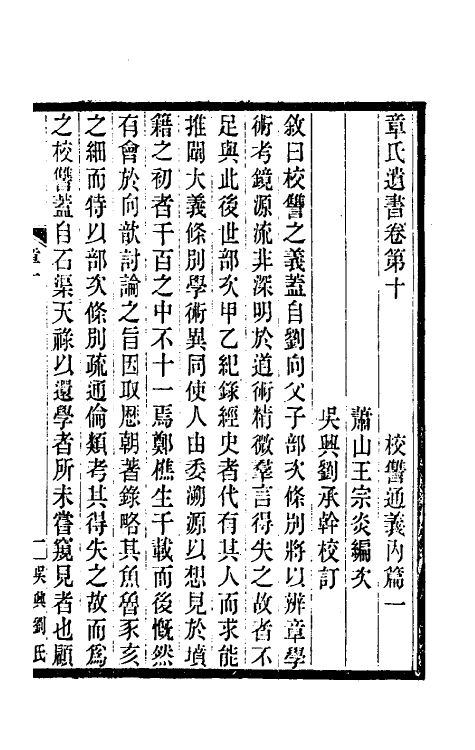 章氏遺書卷第十　校讐通義內篇一
蕭山王宗炎編次
吳興劉承幹校訂
敘曰校讐之義蓋自劉向父子部次條別將以辨章學
術考鏡源流非深明於道術精微羣言得失之故者不
足與此後世部次甲乙紀錄經史者代有其人而求能
推闡大義條別學術異同使人由委溯源以想見於墳
籍之初者千百之中不十一焉鄭樵生千載而後慨然
有會於向歆討論之旨因取歷朝著錄略其魚魯豕亥
之細而特以部次條別疏通倫類考其得失之故而爲
之校讐蓋自石渠天祿以還學者所未嘗窺見者也顧
章十　一　吳興劉氏